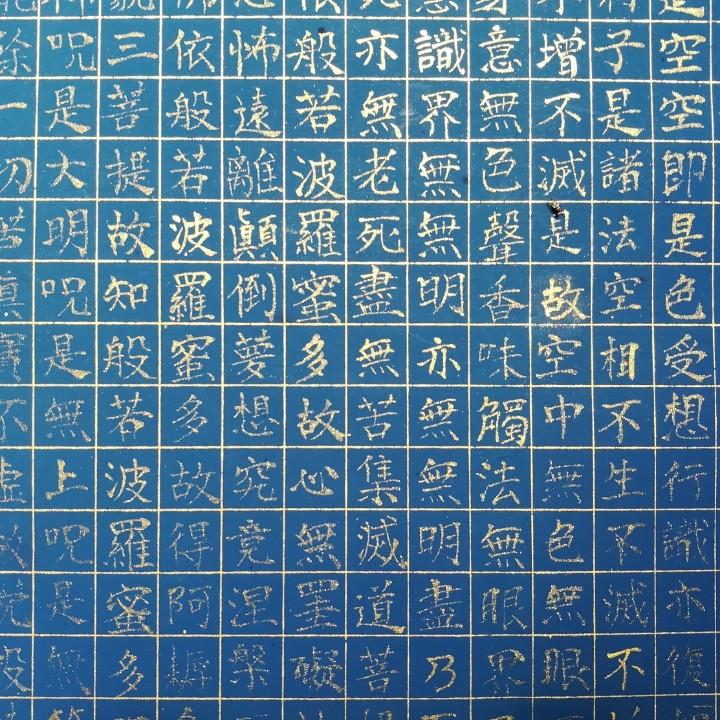 是空空即是色受想行識亦復
子是諸法空相不生不滅不
增不滅是故空中無色無眼
意無色聲香味觸法無眼界
識界無無明亦無無明盡乃
亦無老死盡無苦集滅道菩
般若波羅蜜多故心無罣礙
怖遠離顛倒夢想究竟涅槃
依般若波羅蜜多故得阿耨
藐三菩提故知般若波羅蜜多
呪是大明呪是無上呪是無
能除一切苦真實不虛故說般